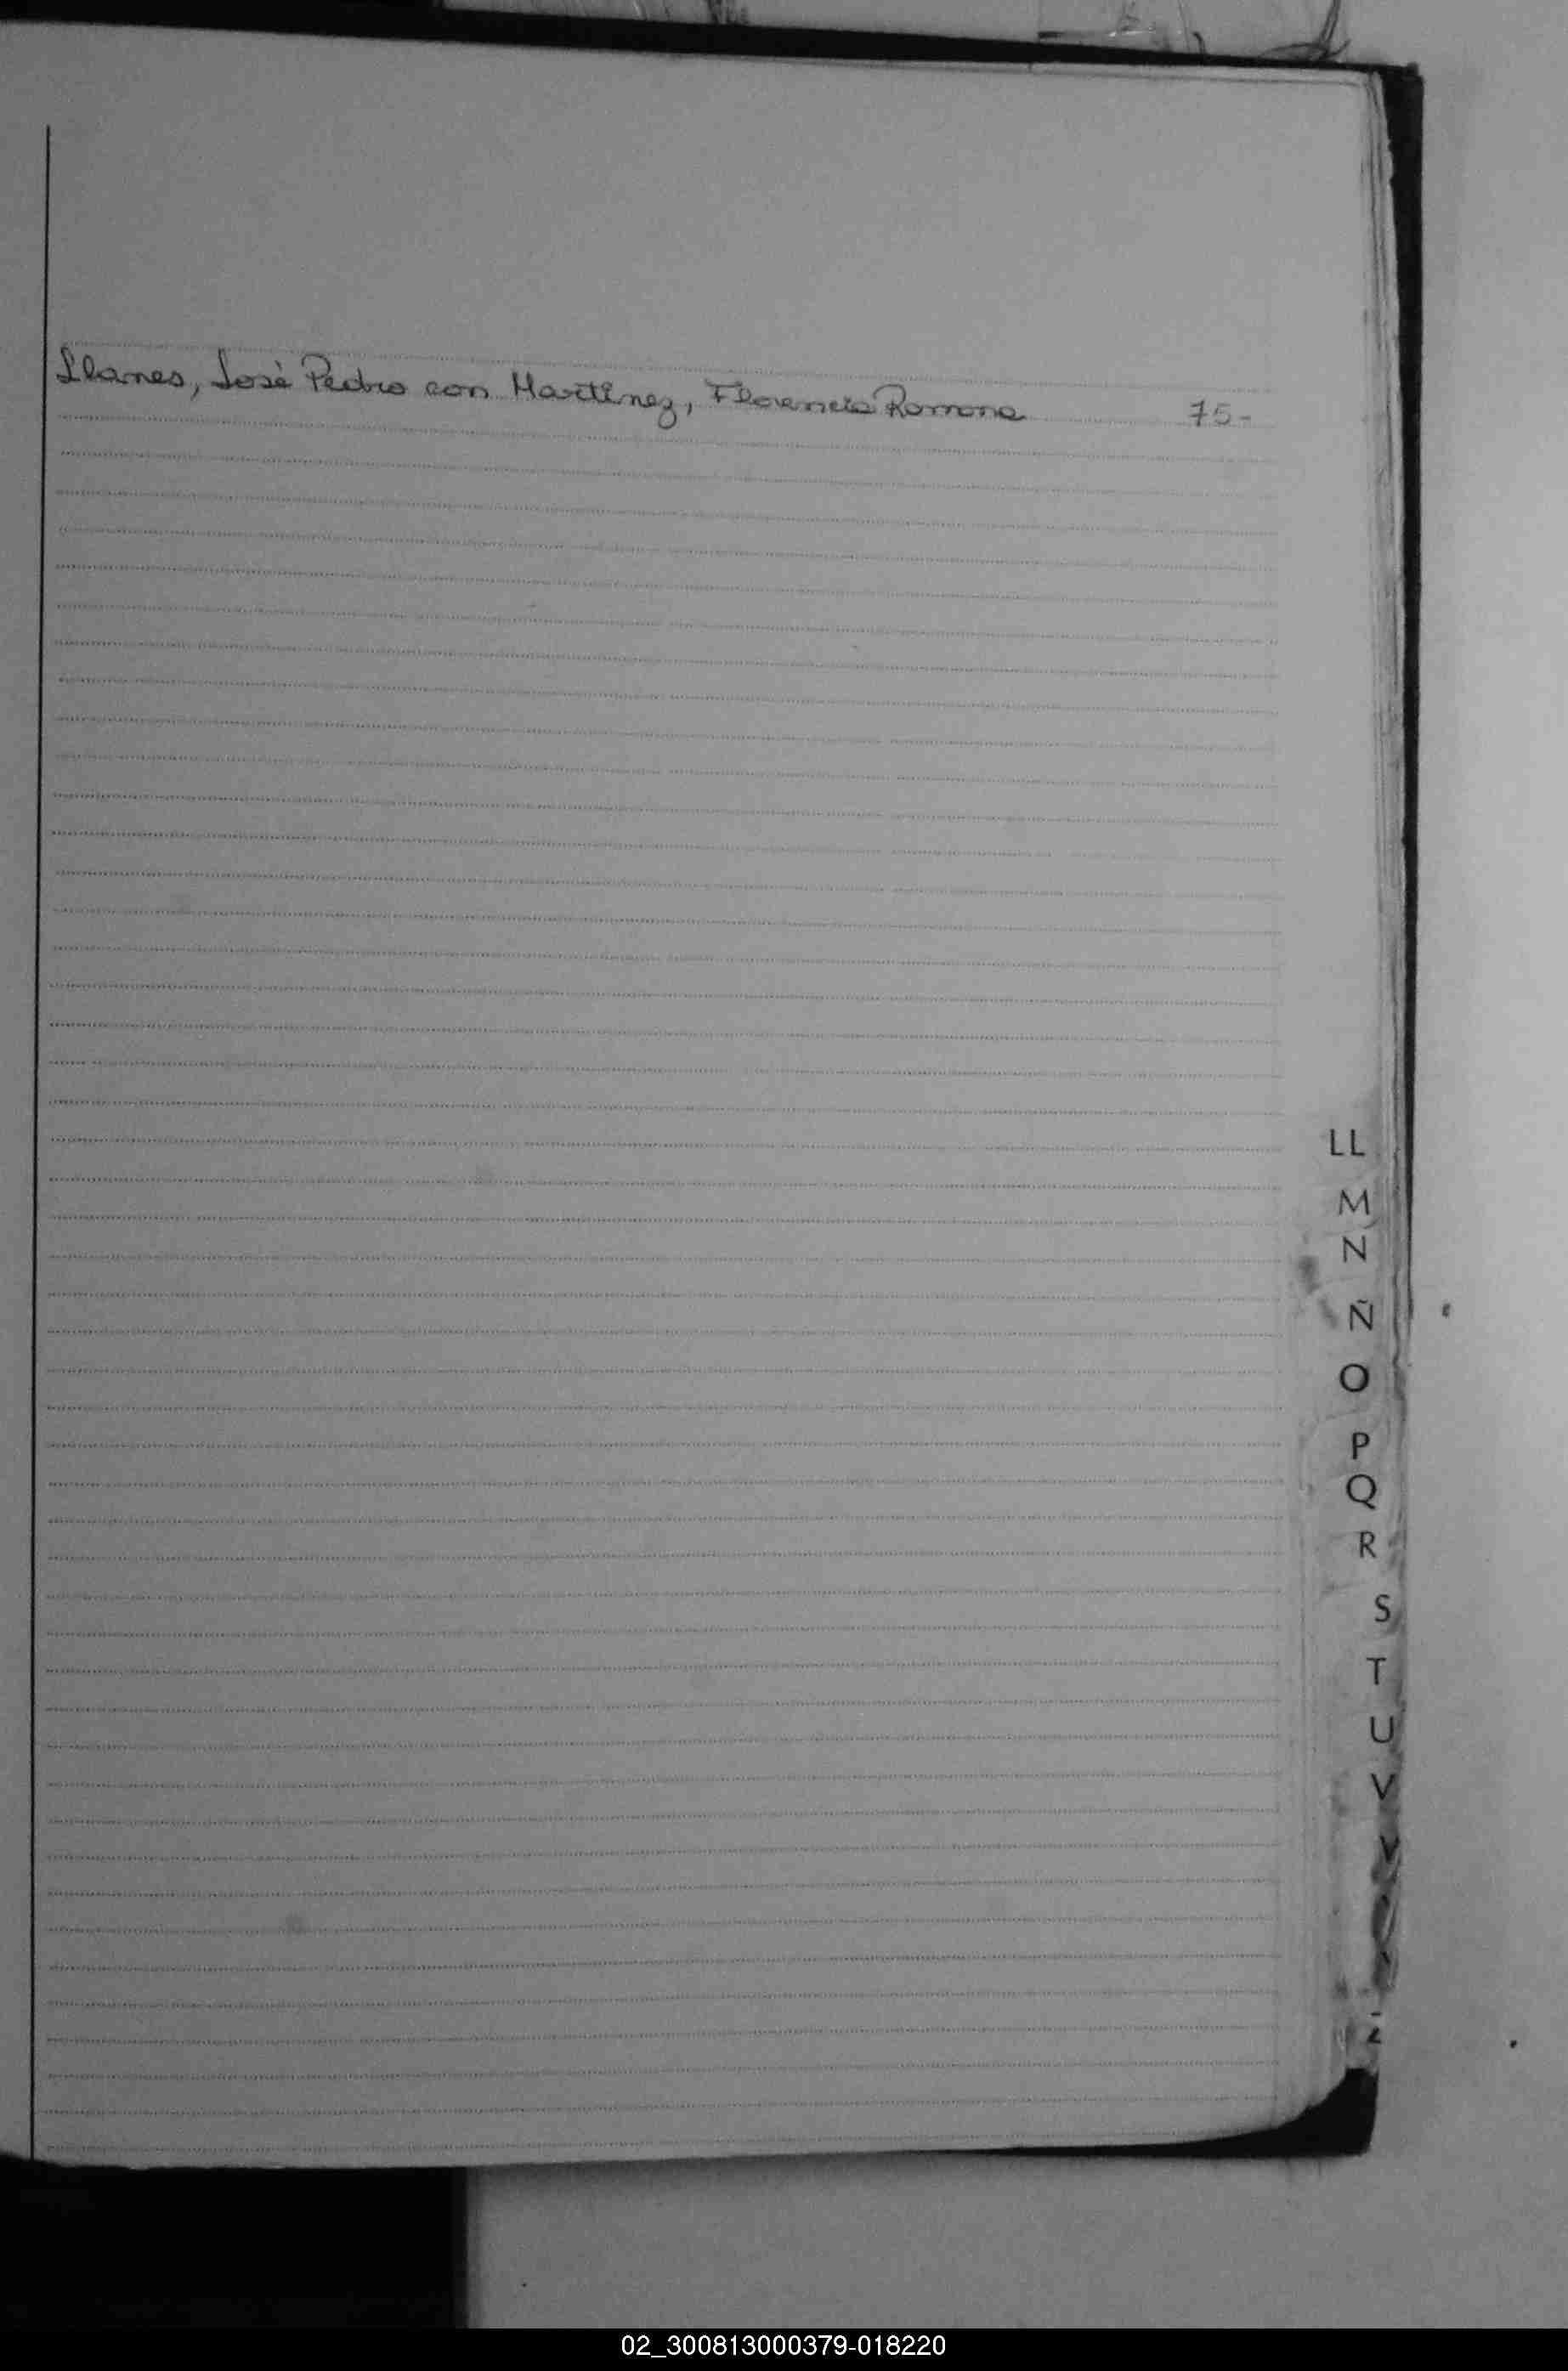 Llanes, José Pedro con Martinez, Florencia Ramona 75-
LL
M
N
Ñ
O
P
Q
R
S
T
U
V
Z
02_300813000379-018220